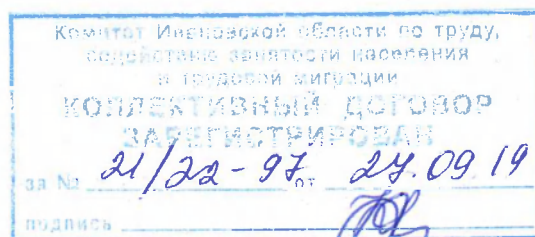 Комитет Ивановской области по труду,
содействию занятости населения
и трудовой миграции
КОЛЛЕКТИВНЫЙ ДОГОВОР
ЗАРЕГИСТРИРОВАН
за № 21/22-97 от 27.09 19
подпись